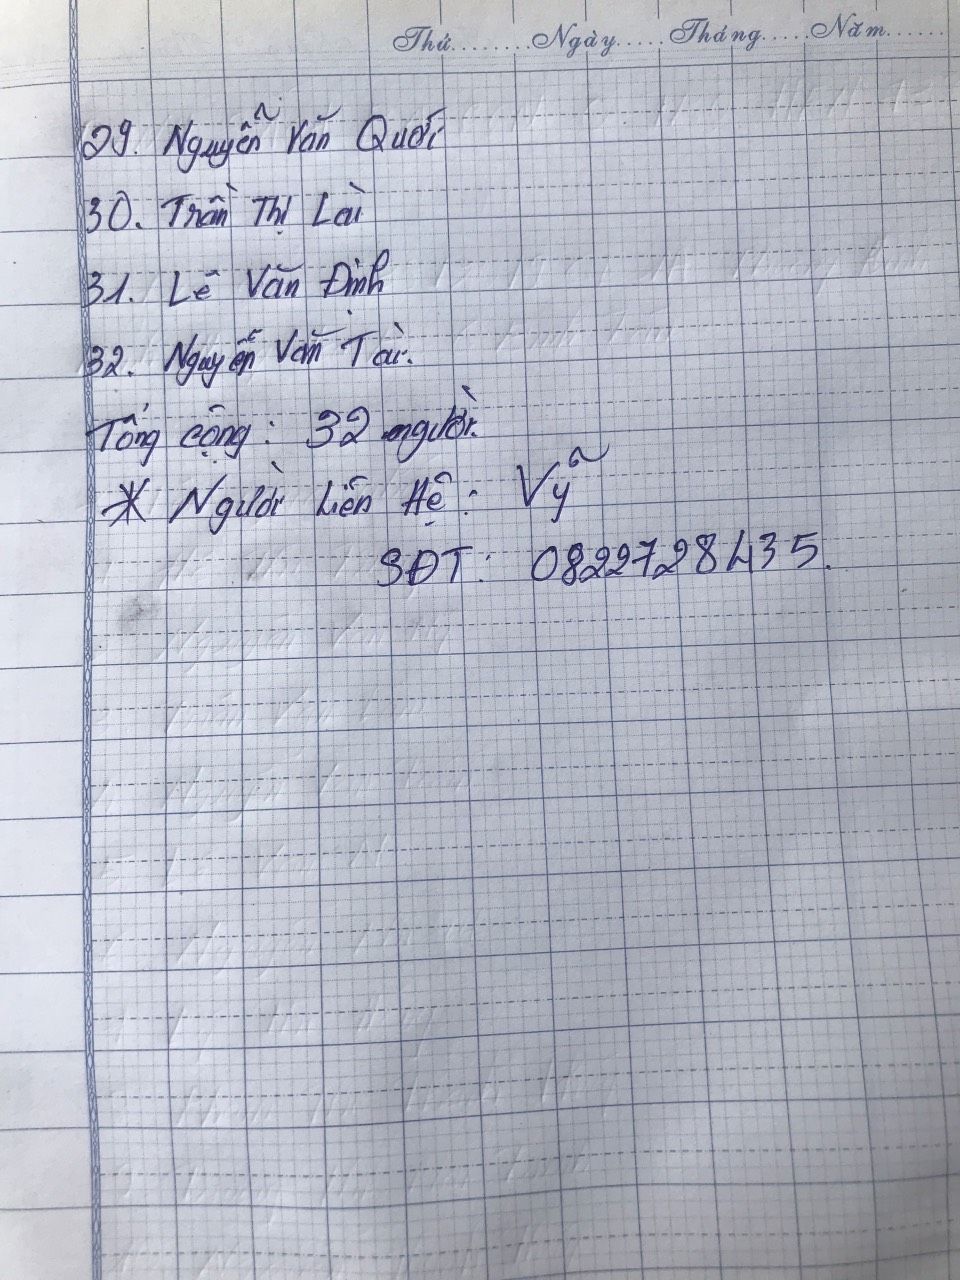 Thứ........Ngày.....Tháng.....Năm......
29. Nguyễn Văn Quới
30. Trần Thị Lài
31. Lê Văn Định
32. Nguyễn Văn Tài.
Tổng cộng: 32 người.
* Người Liên Hệ: Vỹ
SĐT: 0822728435.